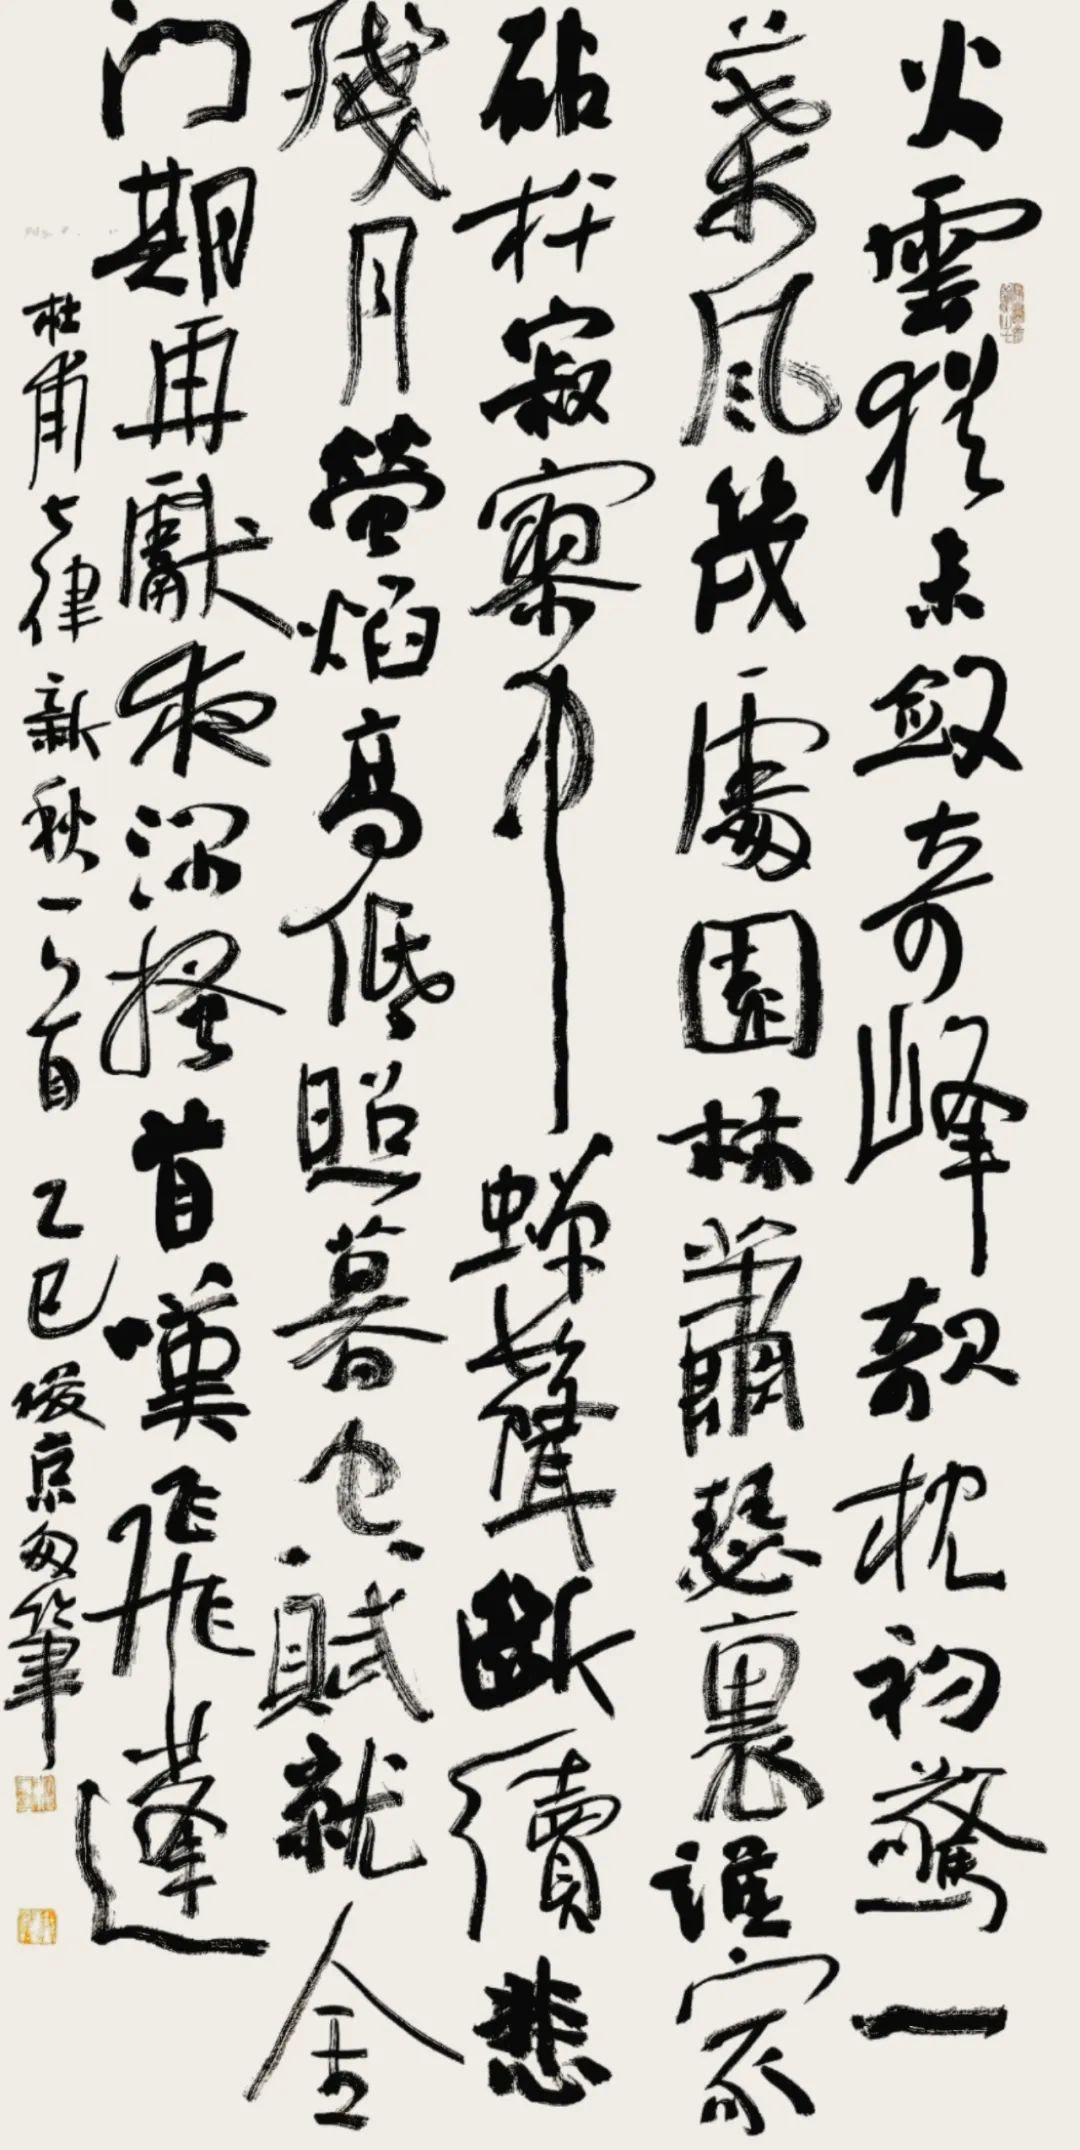 火雲猶未斂奇峰欹枕初驚一
葉風幾處園林蕭瑟裏誰家
砧杵寂寥中蟬聲斷續悲
殘月螢焰高低照暮空賦就金
门期再獻夜深搔首嘆飛蓬
杜甫七律新秋一首 乙巳 俊京筆